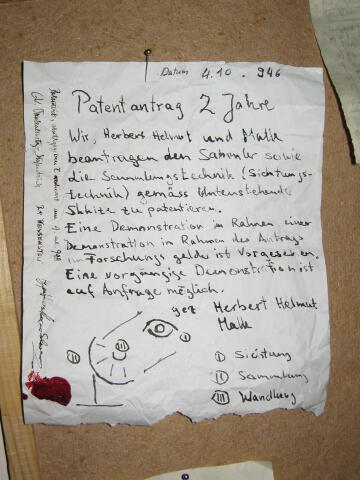 Datum 4.10. 946
Patentantrag 2 Jahre
Wir, Herbert Helmut und Malk
beantragen den Sammler sowie
die Sammlungstechnik (Sichtungs-
technik) gemäss Untenstehende
Skhize zu patentieren.
Eine Demonstration im Rahmen einer
Demonstration im Rahmen des Antrags
Forschungs gelder ist Vorgesehen.
Eine vorgängige Demonstration ist
auf Anfrage möglich.
gez Herbert Helmut
Malk
I Sichtung
II Sammlung
III Wandlung
I
II
III